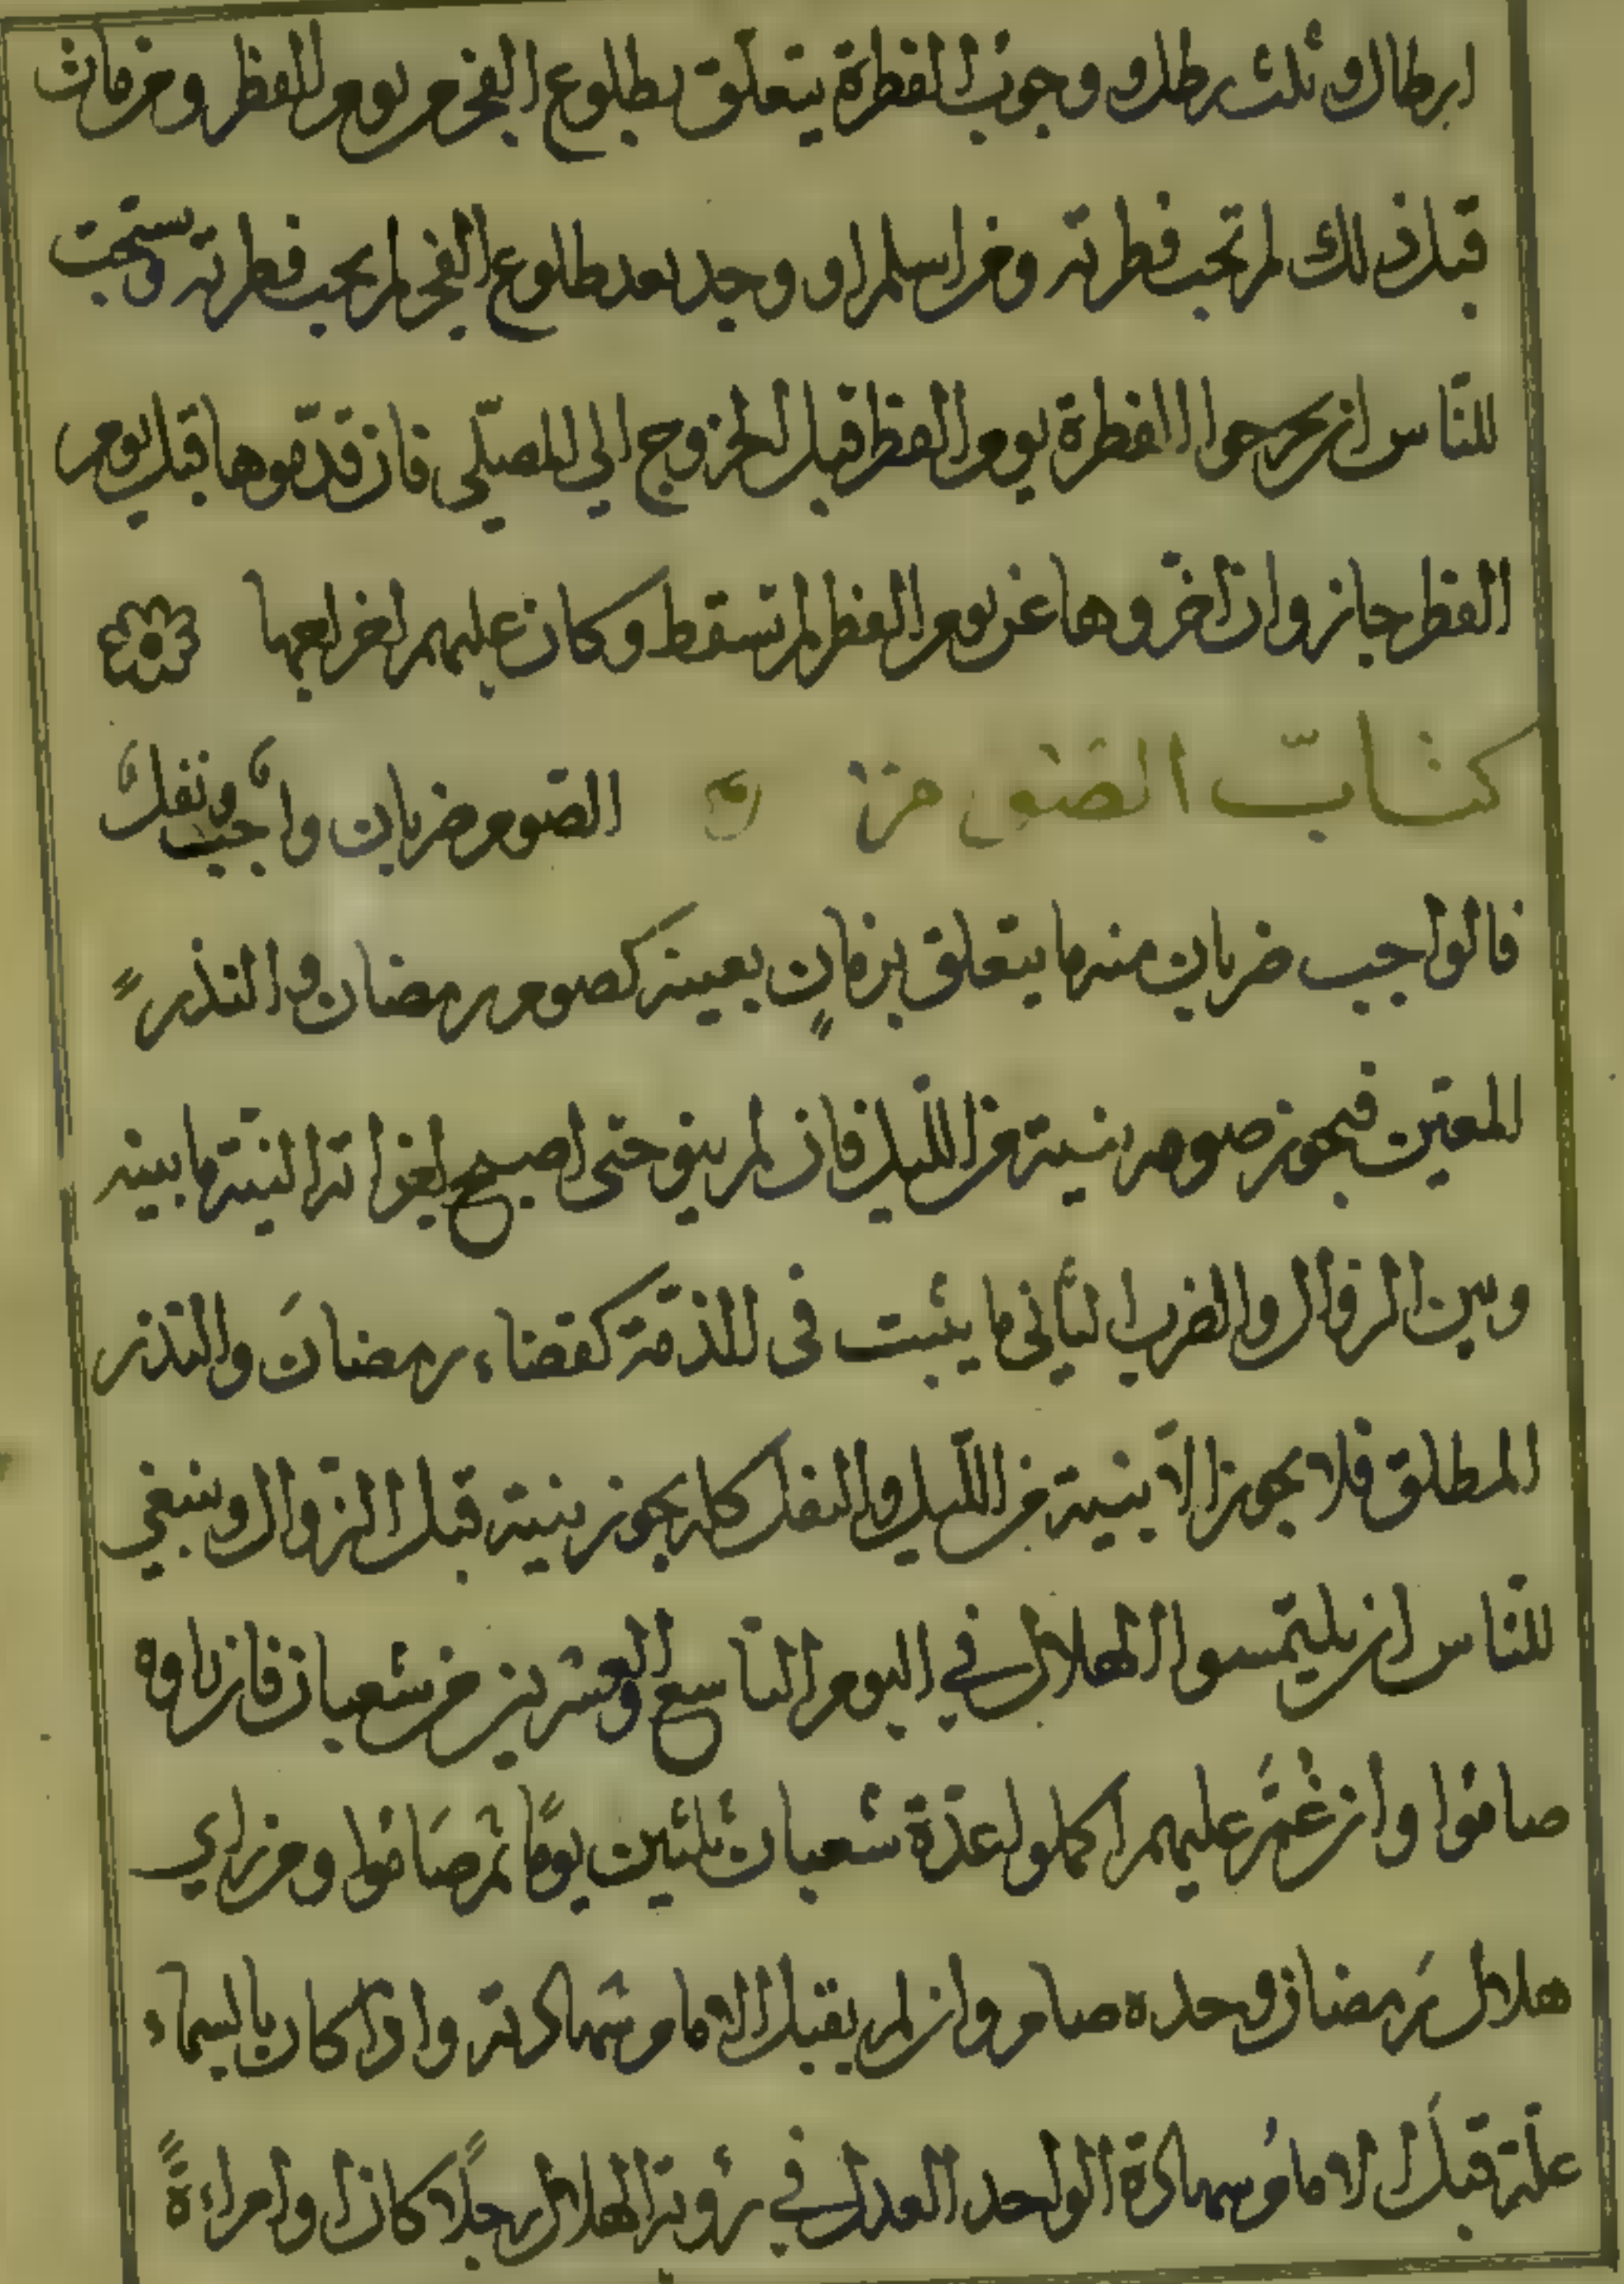 ارطال وثلث رطل ووجوب الفطرة يتعلق بطلوع الفجر من يوم الفطر ومن مات
قبل ذلك لم تجب فطرته ومن اسلم او وجد بعد طلوع الفجر لم يجب فطرته ويستحب
للنّاس ان يخرجوا الفطرة يوم الفطر قبل الخروج الي المصلّى فان قدّموها قبل يوم
الفطر جاز وان اخّروها عن يوم الفطر لم تسقط وكان عليهم اخراجها
كتاب الصوم الصّوم ضربان واجب ونفل
فالواجب ضربان منه ما يتعلق بزمانٍ بعينه كصوم رمضان والنذر
المعيّن فيجوز صومه بنية من اللّيل فان لم ينو حتى اصبح اجزأته النيّة ما بينه
وبين الزوال والضرب الثاني ما يثبت فى الذمّة كقضاء رمضانَ والنّذر
المطلق فلا يجوز الاّ بنية من اللّيل والنفل كله يجوز بنية قبل الزّوال وينبغي
للنّاس ان يلتمسوا الهلال في اليوم التّاسع والعشرين من شعبان فان راوه
صامُوا وان غُمَّ عليهم اكملوا عدّة شعبان ثلثين يومًا ثم صَامُوا ومن راي
هلال رَمضان وحده صام وان لم يقبل الامام شهادته واذا كان بالسماء
علّة قبلَ الامامُ شهادة الواحد العدل في رؤية الهلال رجلًا كان او امراءةً